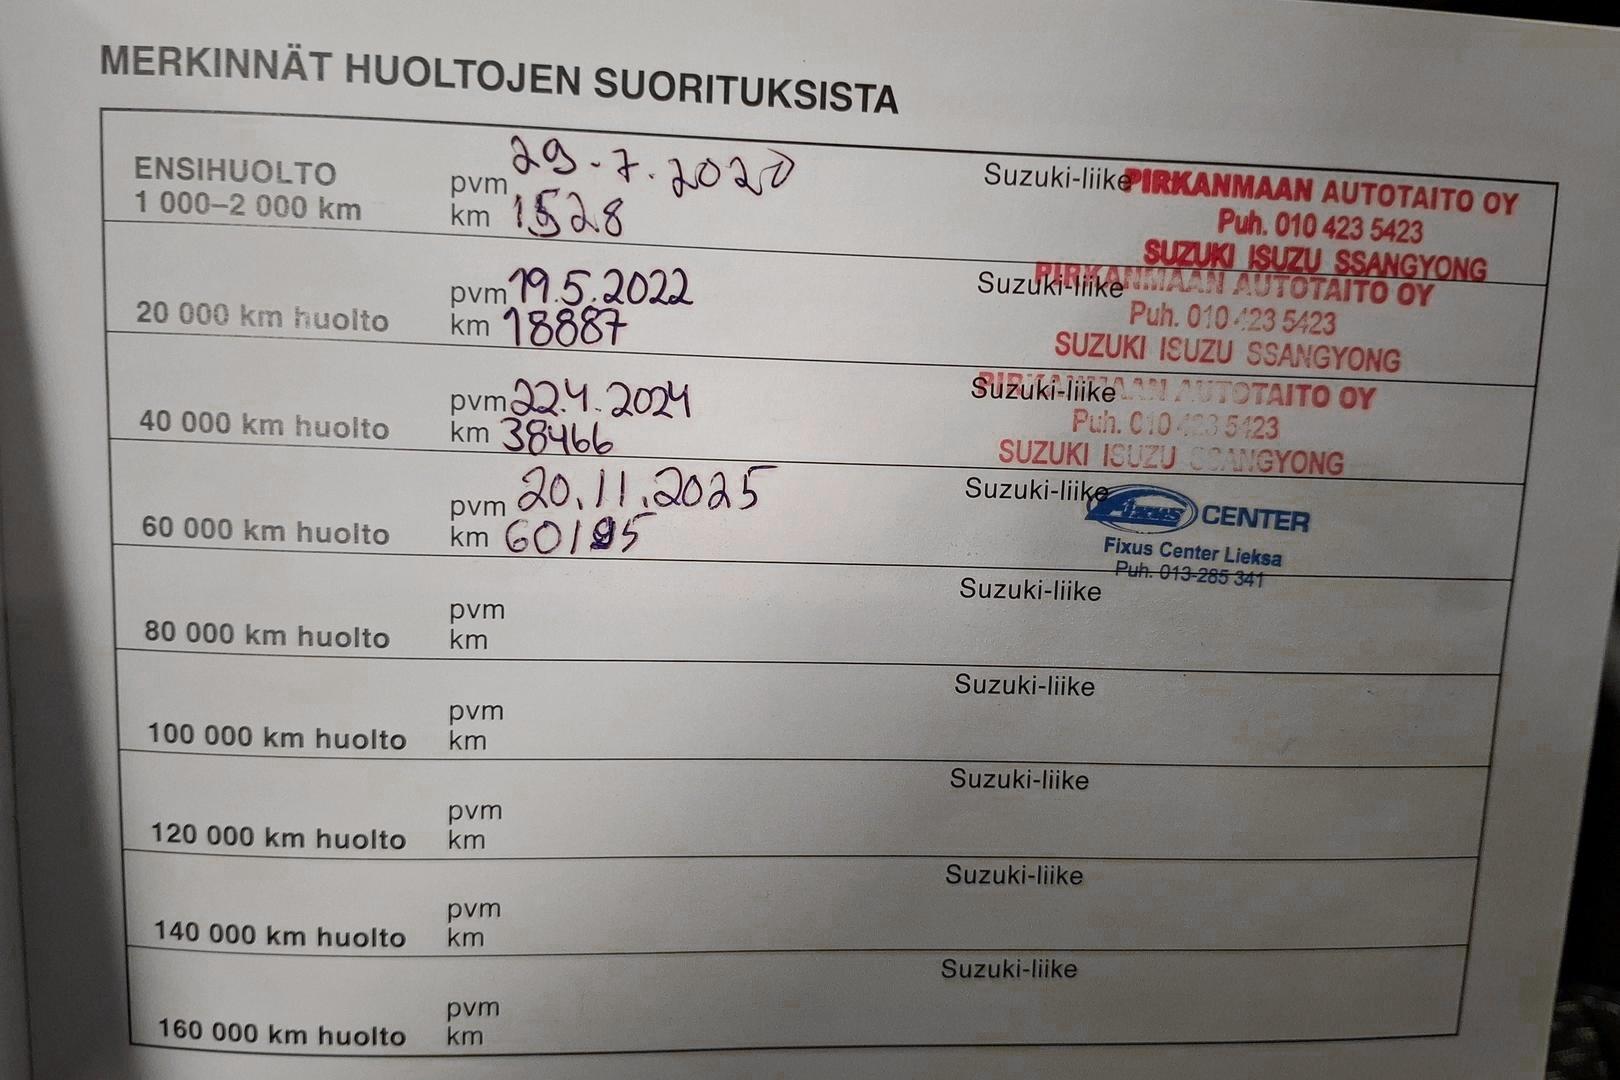 MERKINNÄT HUOLTOJEN SUORITUKSISTA
ENSIHUOLTO
1 000–2 000 km
pvm 29.7.2020
km 1528
Suzuki-liike
PIRKANMAAN AUTOTAITO OY
Puh. 010 423 5423
SUZUKI ISUZU SSANGYONG
20 000 km huolto
pvm 19.5.2022
km 18887
Suzuki-liike
PIRKANMAAN AUTOTAITO OY
Puh. 010 423 5423
SUZUKI ISUZU SSANGYONG
40 000 km huolto
pvm 22.4.2024
km 38466
Suzuki-liike
PIRKANMAAN AUTOTAITO OY
Puh. 010 423 5423
SUZUKI ISUZU SSANGYONG
60 000 km huolto
pvm 20.11.2025
km 60195
Suzuki-liike
Fixus CENTER
Fixus Center Lieksa
Puh. 013-285 341
80 000 km huolto
pvm
km
Suzuki-liike
100 000 km huolto
pvm
km
Suzuki-liike
120 000 km huolto
pvm
km
Suzuki-liike
140 000 km huolto
pvm
km
Suzuki-liike
160 000 km huolto
pvm
km
Suzuki-liike